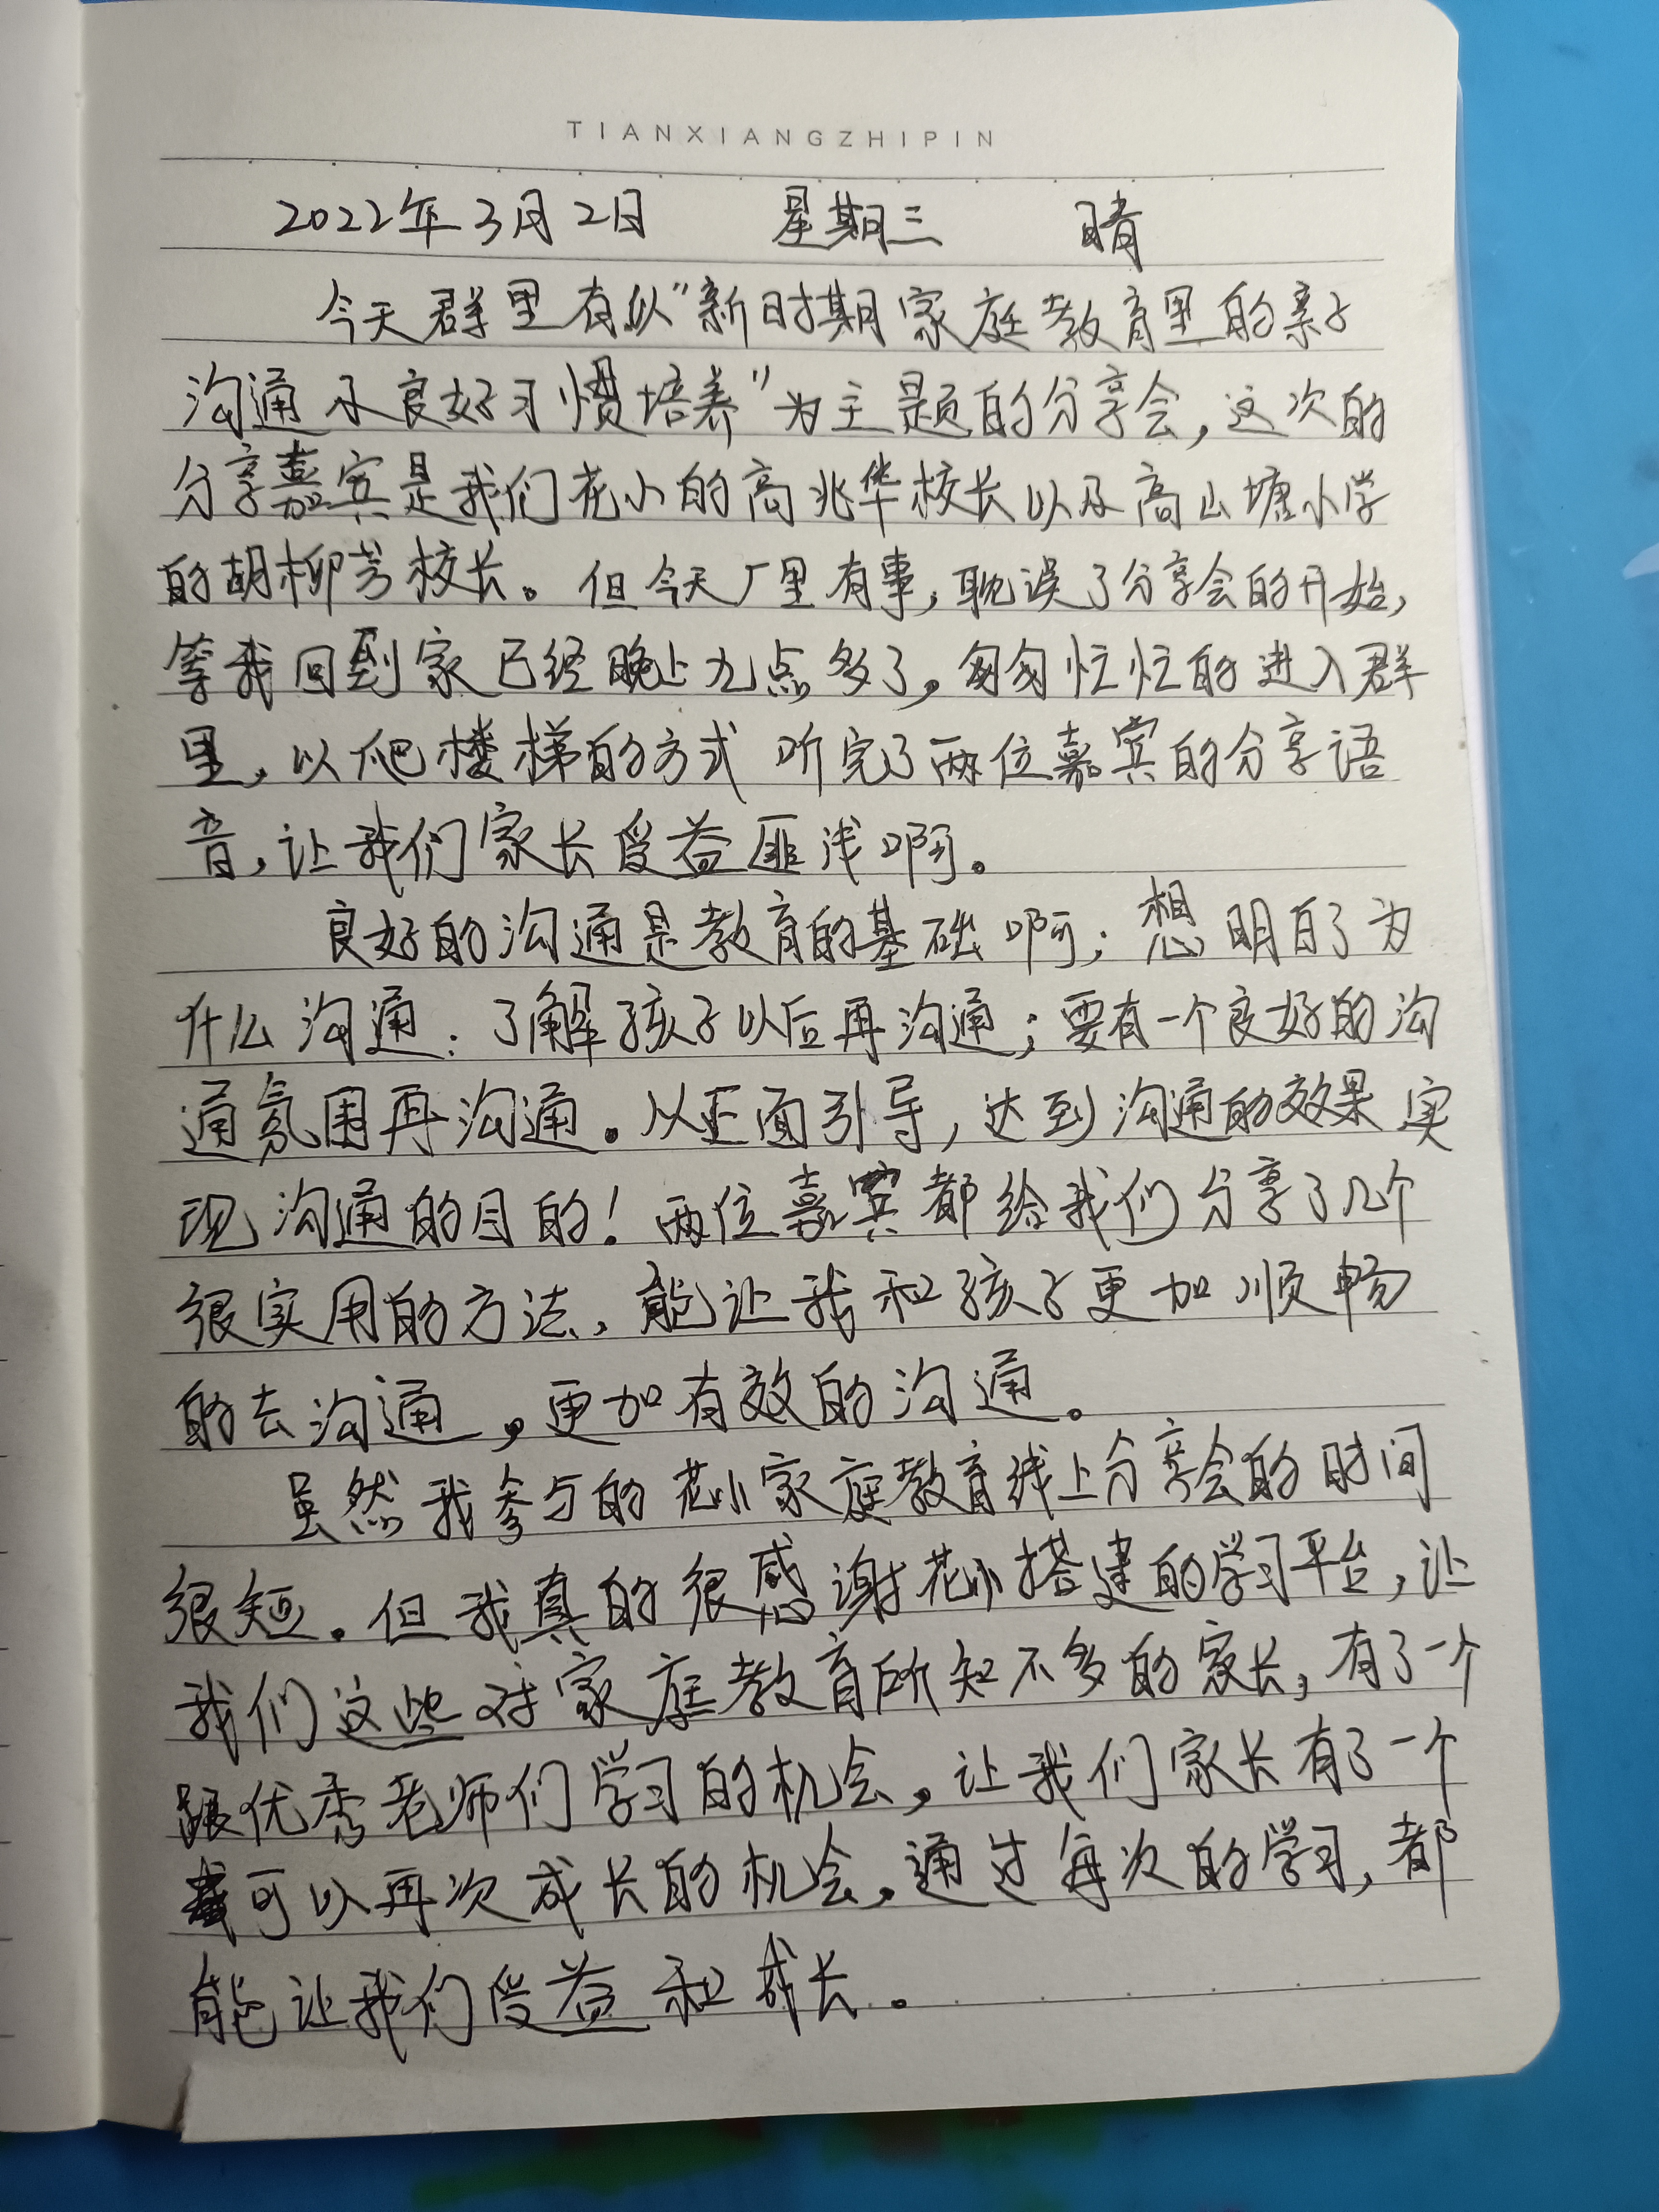 TIANXIANGZHIPIN
2022年3月2日 星期三 晴
今天群里有以“新时期家庭教育里的亲子
沟通及良好习惯培养”为主题的分享会,这次的
分享嘉宾是我们花小的高兆华校长以及高山塘小学
的胡柳芳校长。但今天厂里有事,耽误了分享会的开始,
等我回到家已经晚上九点多了。匆匆忙忙的进入群
里,以爬楼梯的方式听完了两位嘉宾的分享语
音,让我们家长受益匪浅啊。
良好的沟通是教育的基础啊;想明白了为
什么沟通;了解孩子以后再沟通;要有一个良好的沟
通氛围再沟通。以正面引导,达到沟通的效果实
现沟通的目的!两位嘉宾都给我们分享了几个
很实用的方法,能让我和孩子更加顺畅
的去沟通,更加有效的沟通。
虽然我参与的花小家庭教育线上分享会的时间
很短。但我真的很感谢花小搭建的学习平台,让
我们这些对家庭教育所知不多的家长,有了一个
跟优秀老师们学习的机会,让我们家长有了一个
可以再次成长的机会。通过每次的学习,都
能让我们受益和成长。